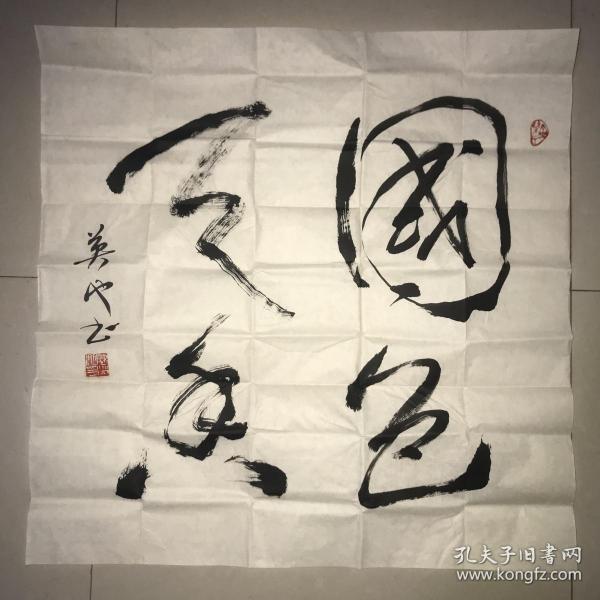 國色
天香
英也书
孔夫子旧书网
www.kongfz.com